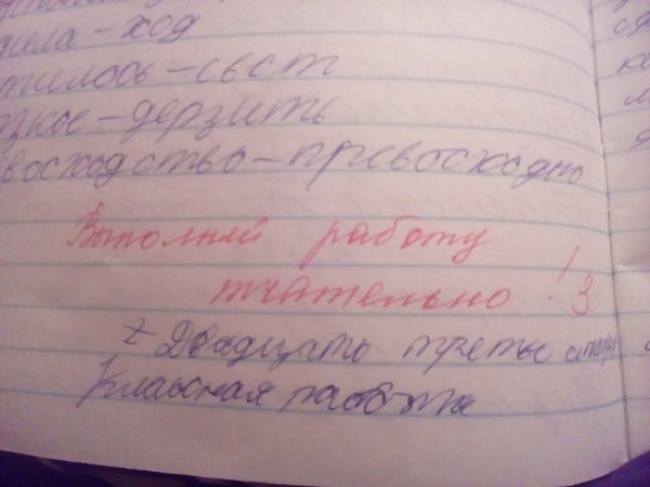 ила – ход
тилось – сьест
зкое – дерзить
восходство – превосходно
Выполняй работу
тчательно! 3.
Двадцать третье
Классная работа